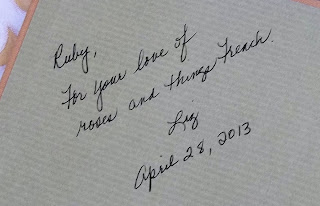 Ruby,
For your love of
roses and things French.
Liz
April 28, 2013